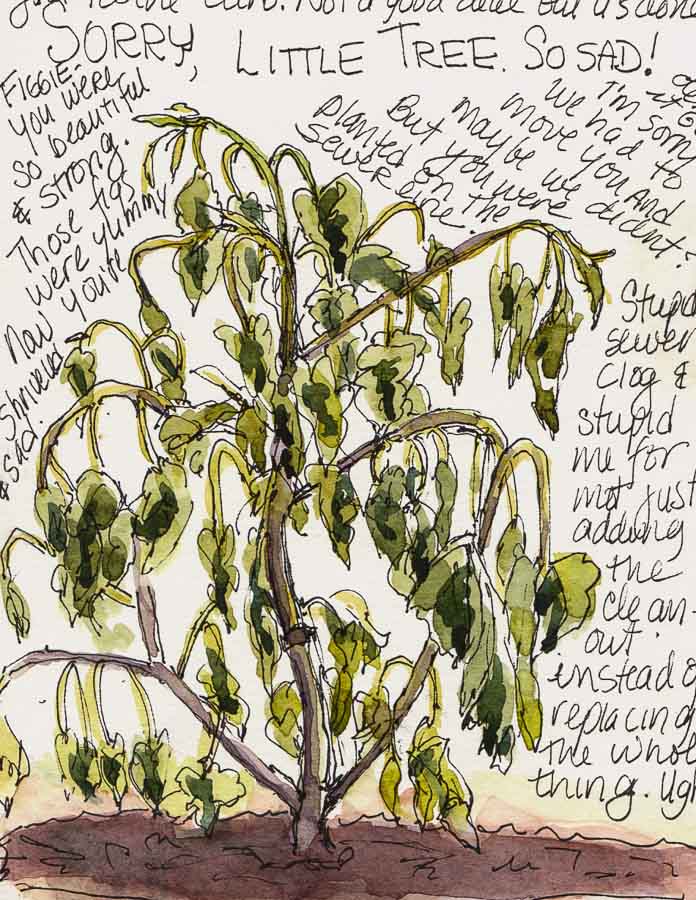 the curb. Not a good deal but it's done
SORRY, LITTLE TREE. SO SAD!
FIGGIE-
You were
so beautiful
& strong.
Those figs
were yummy
Now you're
shriveled
& sad.
I'm sorry
We had to
move you And
maybe we dident?
But you were
planted on the
sewer line.
Stupid
sewer
clog &
stupid
me for
not just
adding
the
clean
out
instead o
replacing
the whole
thing. Ugh